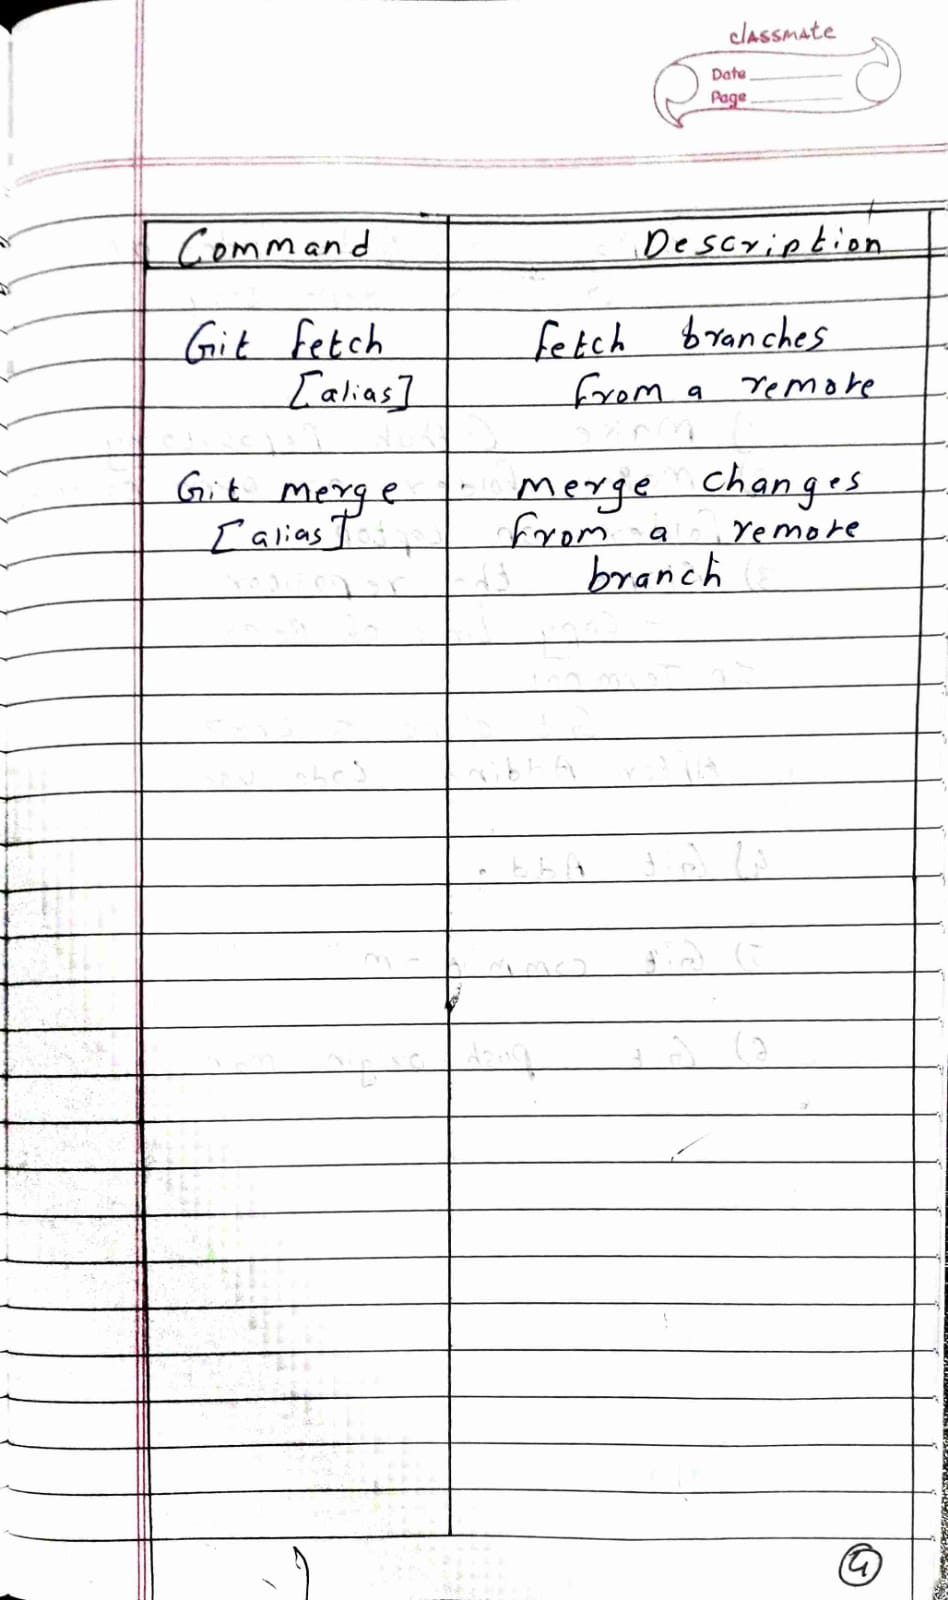 classmate
Date
Page
Command Description
Git fetch fetch branches
[alias] from a remote
Git merge merge changes
[alias] from a remote
branch
4